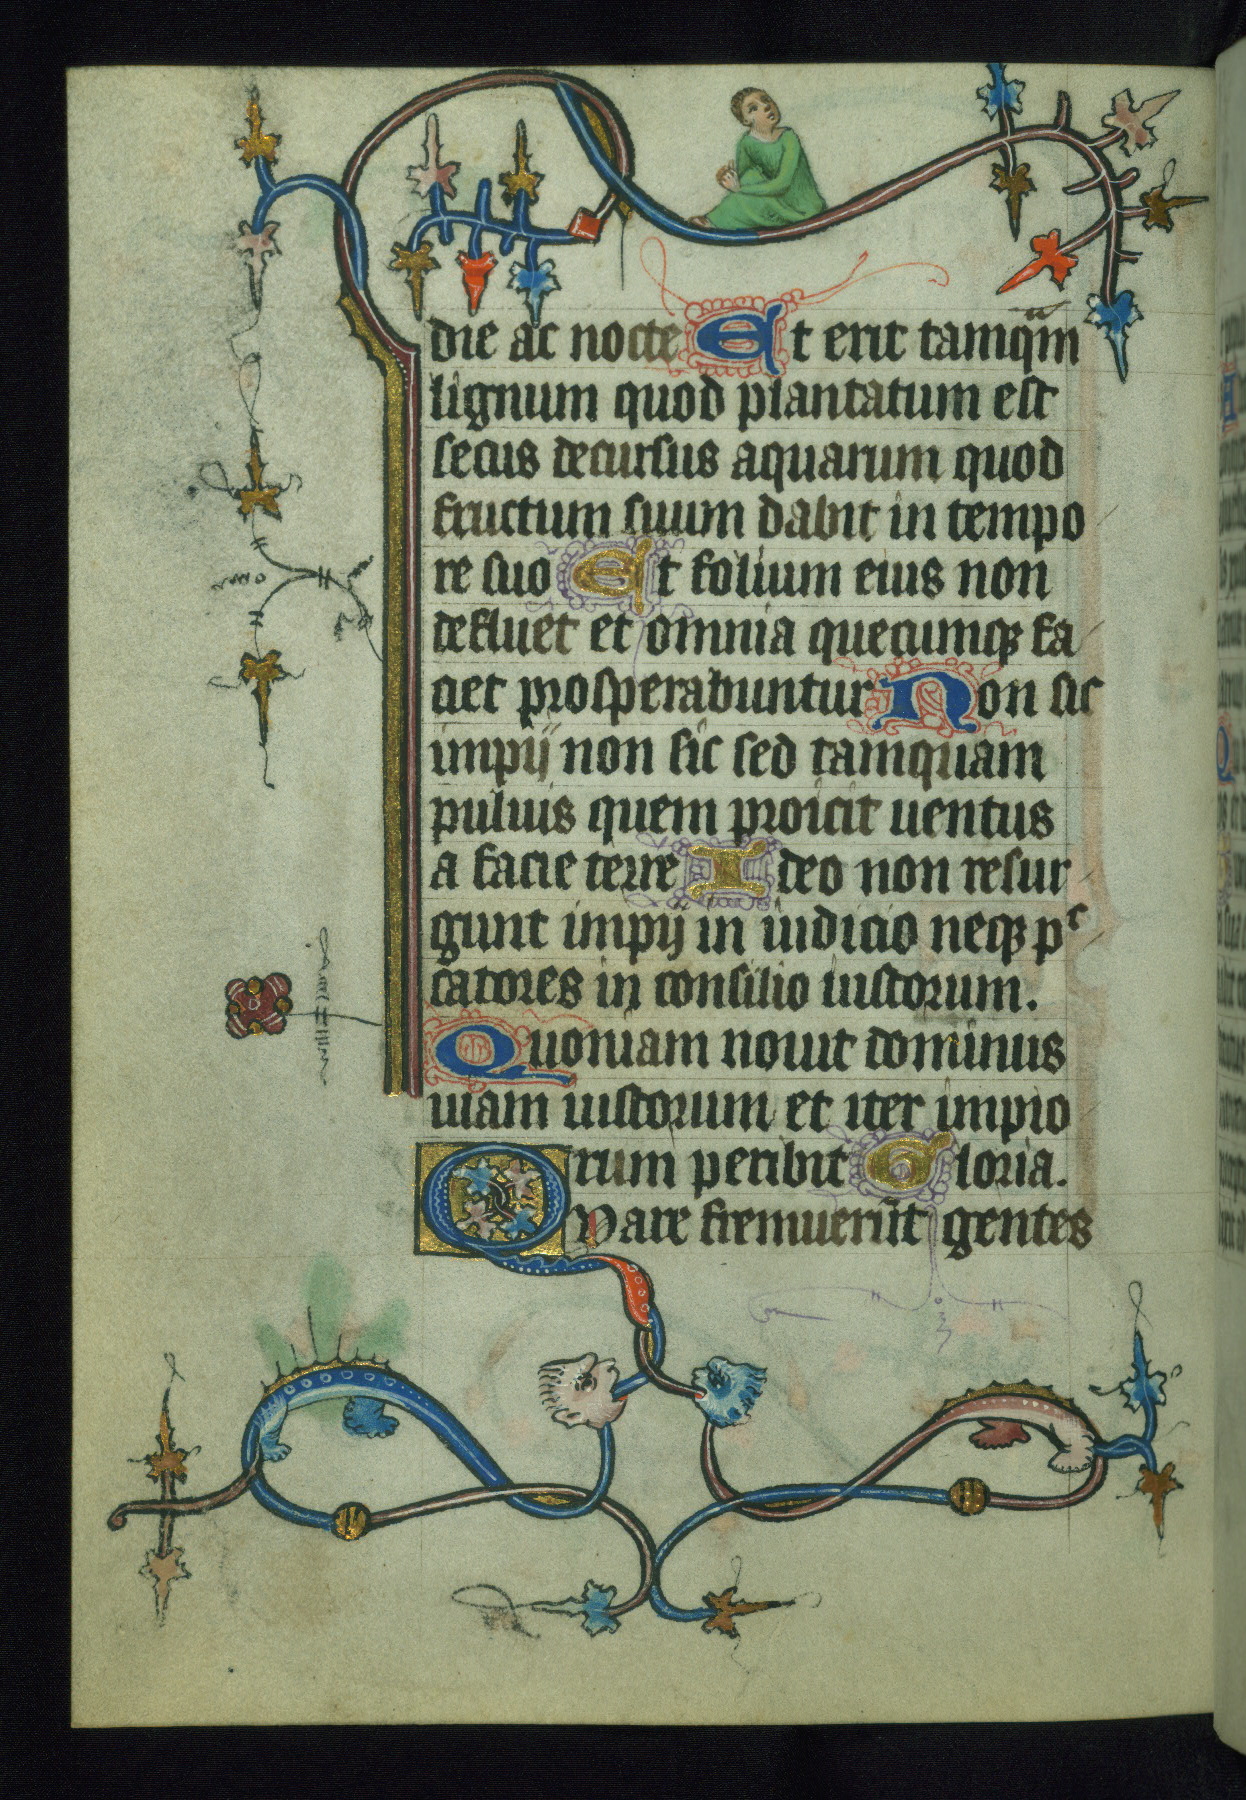 die ac nocte Et erit tamq̃m
lignum quod plantatum est
secus decursus aquarum quod
fructum suum dabit in tempo
re suo Et folium eius non
defluet et omnia quecumqꝫ fa
ciet prosperabuntur Non sic
impij non sic sed tamquam
puluis quem proicit uentus
a facie terre Ideo non resur
gunt impij in iudicio neqꝫ pc
catores in consilio iustorum.
Quoniam nouit dominus
uiam iustorum et iter impio
rum peribit Gloria.
Quare fremuerũt gentes